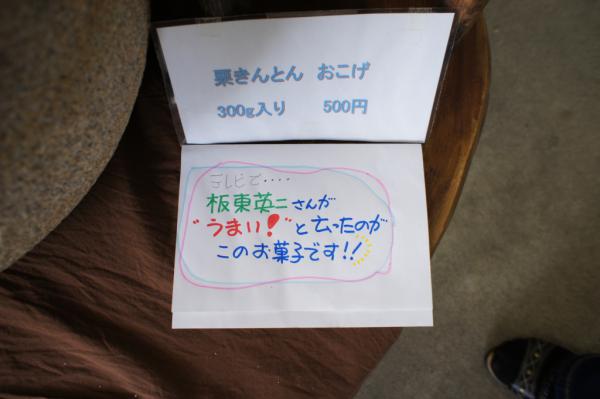 栗きんとん おこげ
300g入り 500円
テレビで‥‥
板東英二さんが
"うまい!"と云ったのが
このお菓子です!!